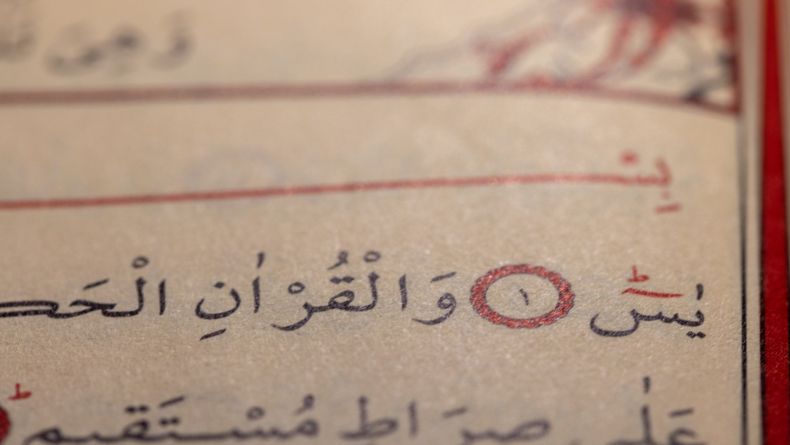 يٰسٓ ۚ ١ وَالْقُرْاٰنِ الْحَك
عَلٰى صِرَاطٍ مُسْتَقٖيمٍ ط